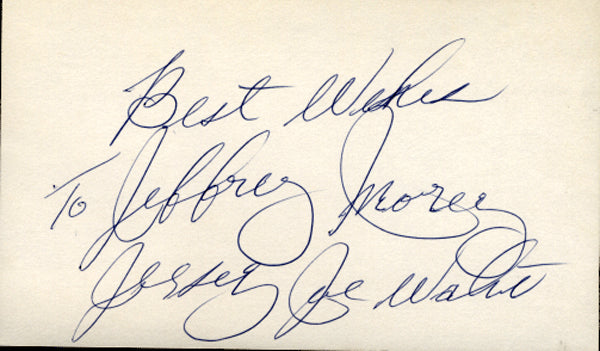 Best Wishes
To Jeffrey Morey
Jersey Joe Walcott